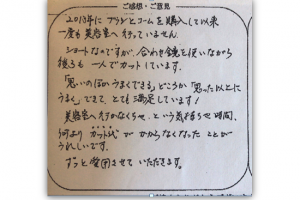 ご感想・ご意見
2018年に プラシとコームを購入して以来
一度も美容室へ行っていません。
ショートなのですが、合わせ鏡を使いながら
後ろも 一人でカットしています。
「思いのほかうまくできる」どころか「思った以上に
うまく」できて、とても満足しています！
美容室へ行かなくちゃ、という気持ちや時間、
何より カット代が かからなくなった ことが
うれしいです。
ずっと愛用させて いただきます。